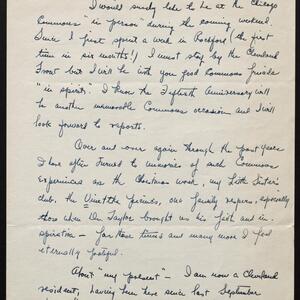 I would surely like to be at the Chicago
Commons "in person" during the coming weekend.
Since I just spent a week in Rockford (the first
time in six months!) I must stay by the Cleveland
Front but I will be with you good Commons friends
"in spirit." I know the Fiftieth Anniversary will
be another memorable Commons occasion and I will
look forward to reports.
Over and over again through the past years
I have often turned to memories of such Commons
experiences as the Christmas work, my Little Sister's
club, the picnics, our family vespers, especially
those when Dr. Taylor brought us his faith and in-
spiration — for those times and many more I feel
eternally grateful.
About "my present" — I am now a Cleveland
resident, having been here since last September